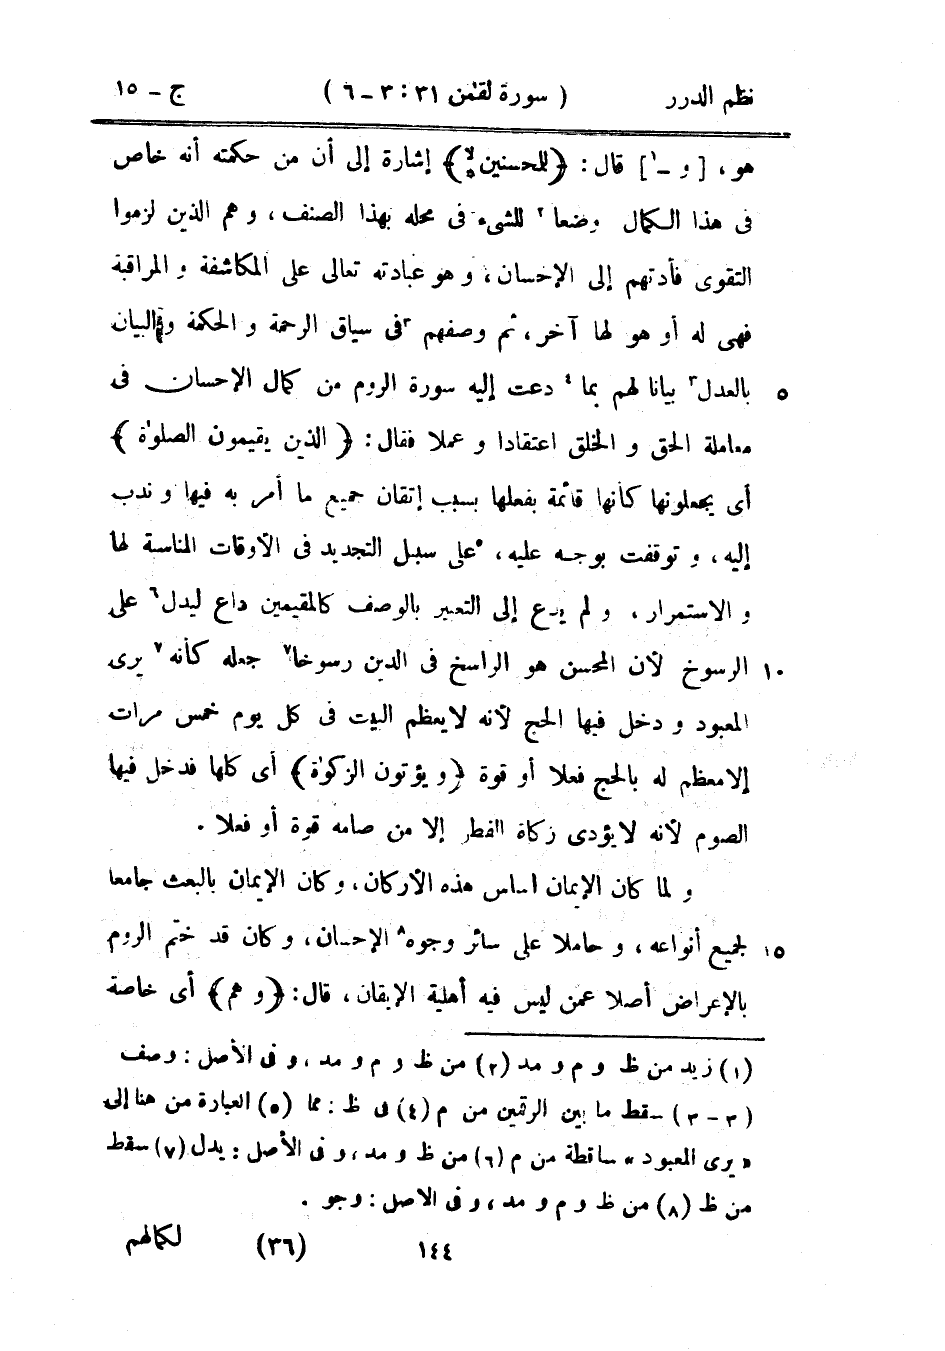 نظم الدرر ( سورة لقمٰن ٣١ : ٣ – ٦ ) ج – ١٥
هو ، [ و –١ ] قال : ﴿ للمحسنين لا ﴾ إشارة إلى أن من حكمته أنه خاص
فى هذا الكمال وضعا٢ للشىء فى محله بهذا الصنف ، و هم الذين لزموا
التقوى فأدتهم إلى الإحسان ، و هو عبادته تعالى على المكاشفة و المراقبة
فهى له أو هو لها آخر ، ثم وصفهم ٣فى سياق الرحمة و الحكمة و البيان
بالعدل٣ بيانا لهم بما٤ دعت إليه سورة الروم من كمال الإحسان فى ٥
معاملة الحق و الخلق اعتقادا و عملا فقال : ﴿ الذين يقيمون الصلوٰة ﴾
أى يجعلونها كأنها قائمة بفعلها بسبب إتقان جميع ما أمر به فيها و ندب
إليه ، و توقفت بوجه عليه ، ٥على سبيل التجديد فى الأوقات المناسبة لها
و الاستمرار ، و لم يدع إلى التعبير بالوصف كالمقيمين داع ليدل٦ على
الرسوخ لأن المحسن هو الراسخ فى الدين رسوخا٧ جعله كأنه٧ يرى ١٠
المعبود و دخل فيها الحج لأنه لا يعظم البيت فى كل يوم خمس مرات
إلا معظم له بالحج فعلا أو قوة ﴿ و يؤتون الزكوٰة ﴾ أى كلها فدخل فيها
الصوم لأنه لا يؤدى زكاة الفطر إلا من صامه قوة أو فعلا .
و لما كان الإيمان أساس هذه الأركان ، و كان الإيمان بالبعث جامعا
لجميع أنواعه ، و حاملا على سائر وجوه٨ الإحسان ، و كان قد ختم الروم ١٥
بالإعراض أصلا عمن ليس فيه أهلية الإيقان ، قال : ﴿ و هم ﴾ أى خاصة
(١) زيد من ظ و م و مد (٢) من ظ و م و مد ، و فى الأصل : وصف
(٣ – ٣) سقط ما بين الرقمين من م (٤) فى ظ : مما (٥) العبارة من هنا إلى
« يرى المعبود » ساقطة من م (٦) من ظ و مد ، و فى الأصل : يدل (٧) سقط
من ظ (٨) من ظ و م و مد ، و فى الاصل : وجو .
١٤٤ (٣٦) لكمالهم